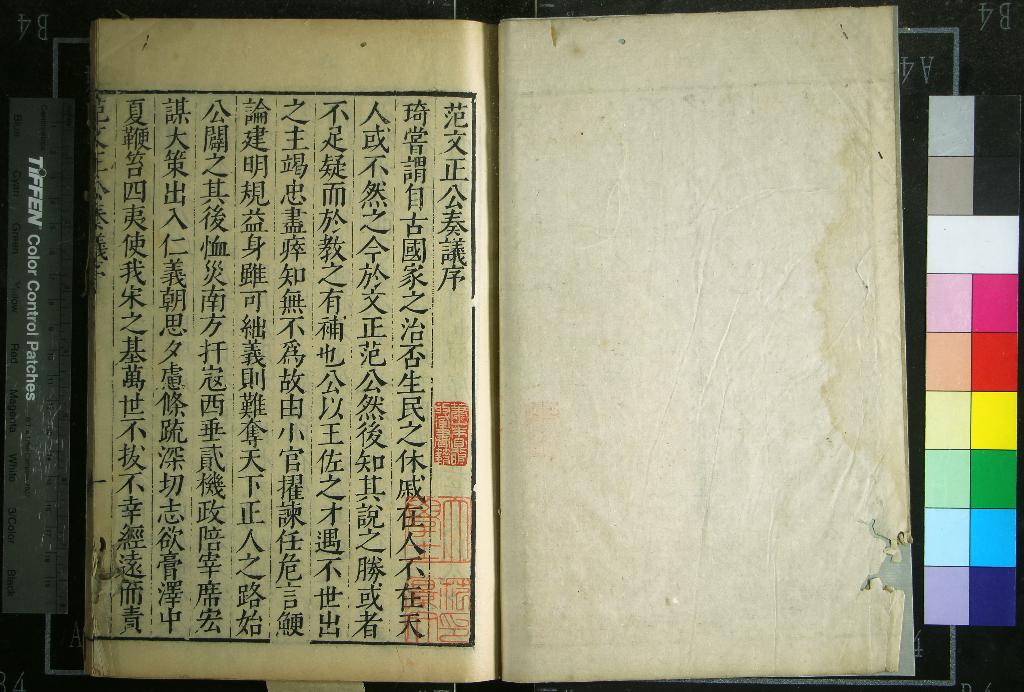 范文正公奏議序
琦嘗謂自古國家之治否生民之休戚在人不在天
人或不然之今於文正范公然後知其說之勝或者
不足疑而於教之有補也公以王佐之才遇不世出
之主竭忠盡瘁知無不爲故由小官擢諫任危言鯁
論建明規益身雖可絀義則難奪天下正人之路始
公闢之其後恤災南方扞寇西垂貳機政陪宰席宏
謀大策出入仁義朝思夕慮條疏深切志欲膏澤中
夏鞭笞四夷使我宋之基萬世不拔不幸經遠而責
范文正公奏議序
一
TIFFEN Color Control Patches
Blue
Cyan
Green
Yellow
Red
Magenta
White
3/Color
Black
B4
B4
A4
B4